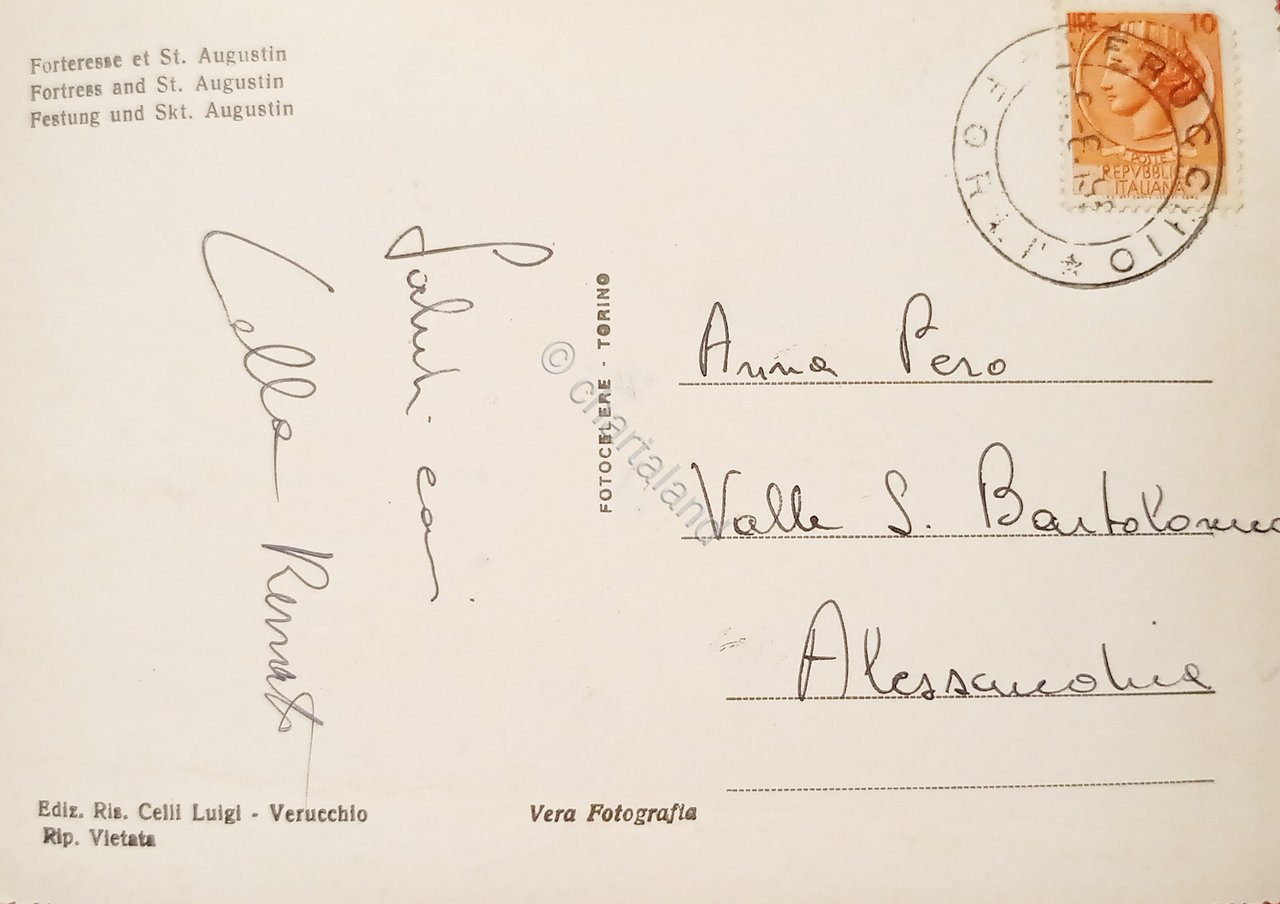 Forteresse et St. Augustin
Fortress and St. Augustin
Festung und Skt. Augustin
LIRE 10
POSTE
REPVBBLICA
ITALIANA
VERUCCHIO * FORLI *
Saluti cari
Cella Renato
FOTOCELERE - TORINO
© chartaland
Anna Pero
Valle S. Bartolomeo
Alessandria
Ediz. Ris. Celli Luigi - Verucchio
Rip. Vietata
Vera Fotografia